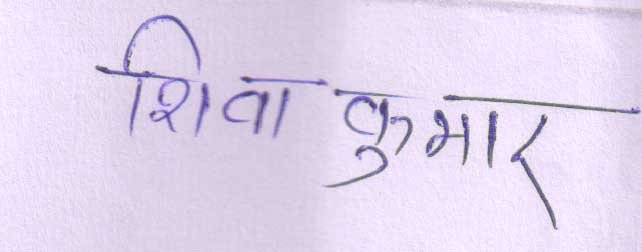 शिवा कुमार